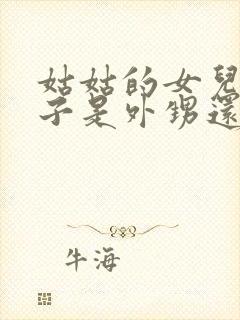 姑姑的女兒
子是外甥還
牛海